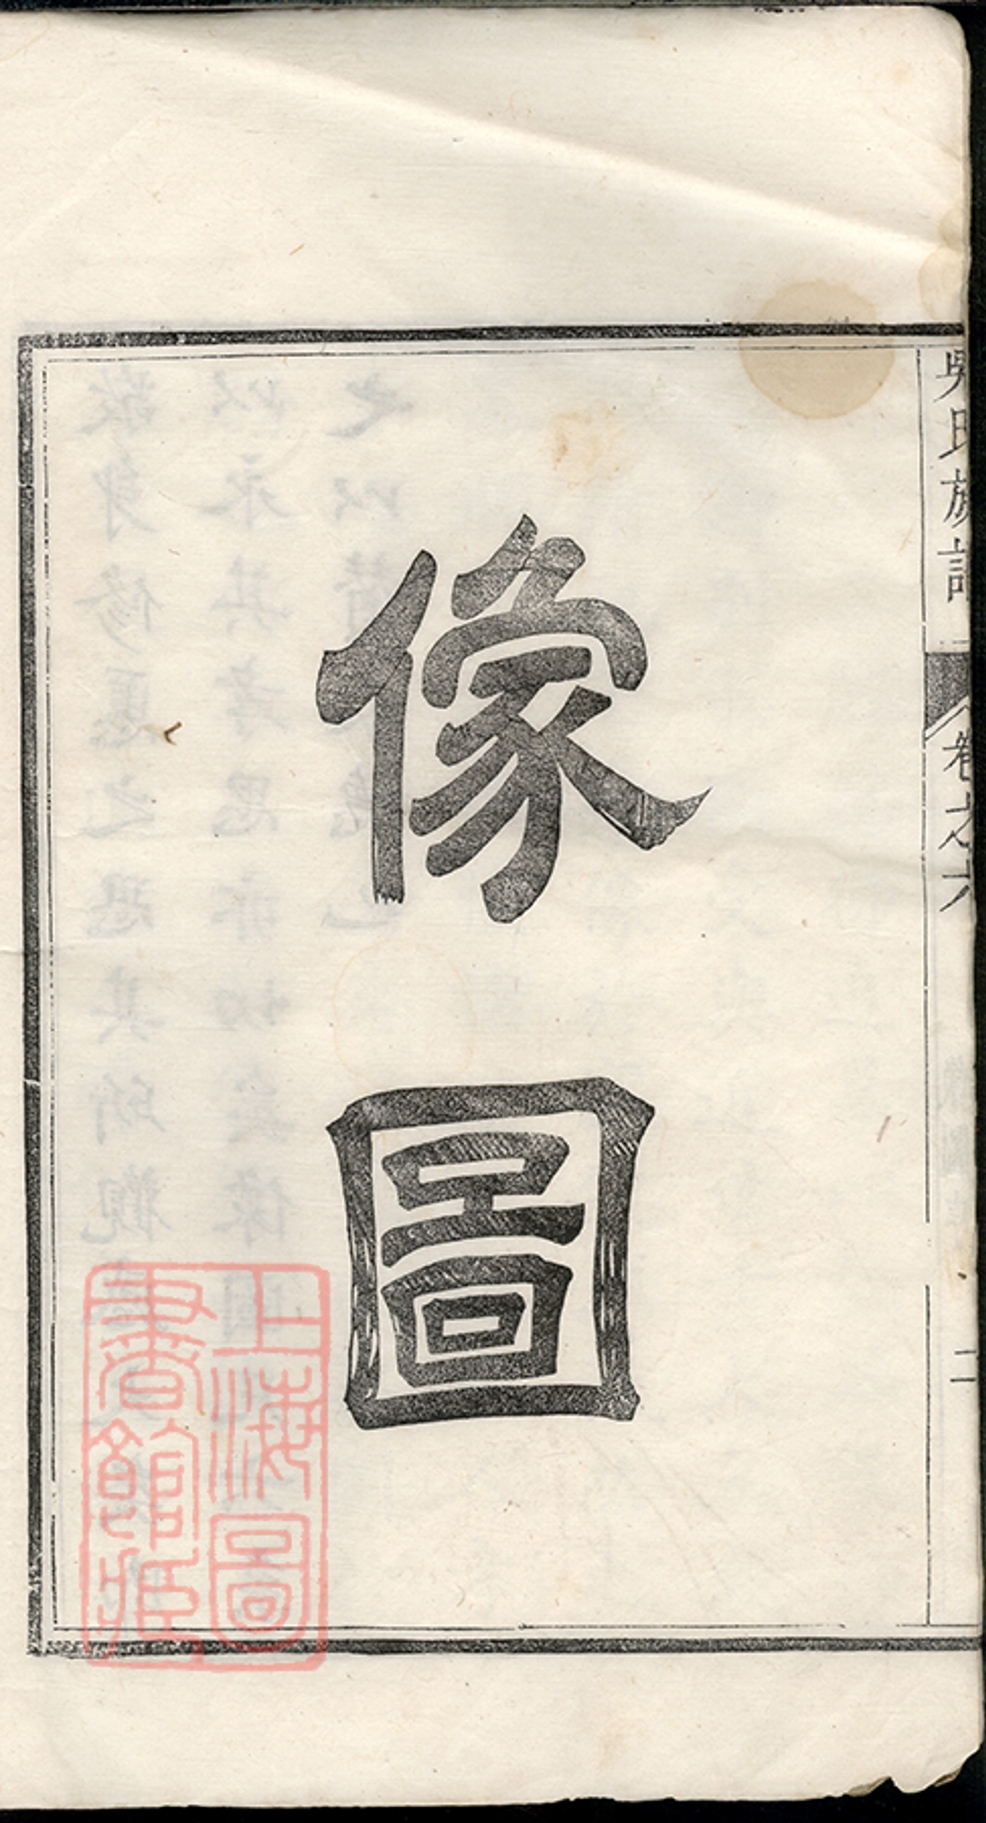 吳氏族譜
卷之六
二
像
圖
上海圖
書館藏